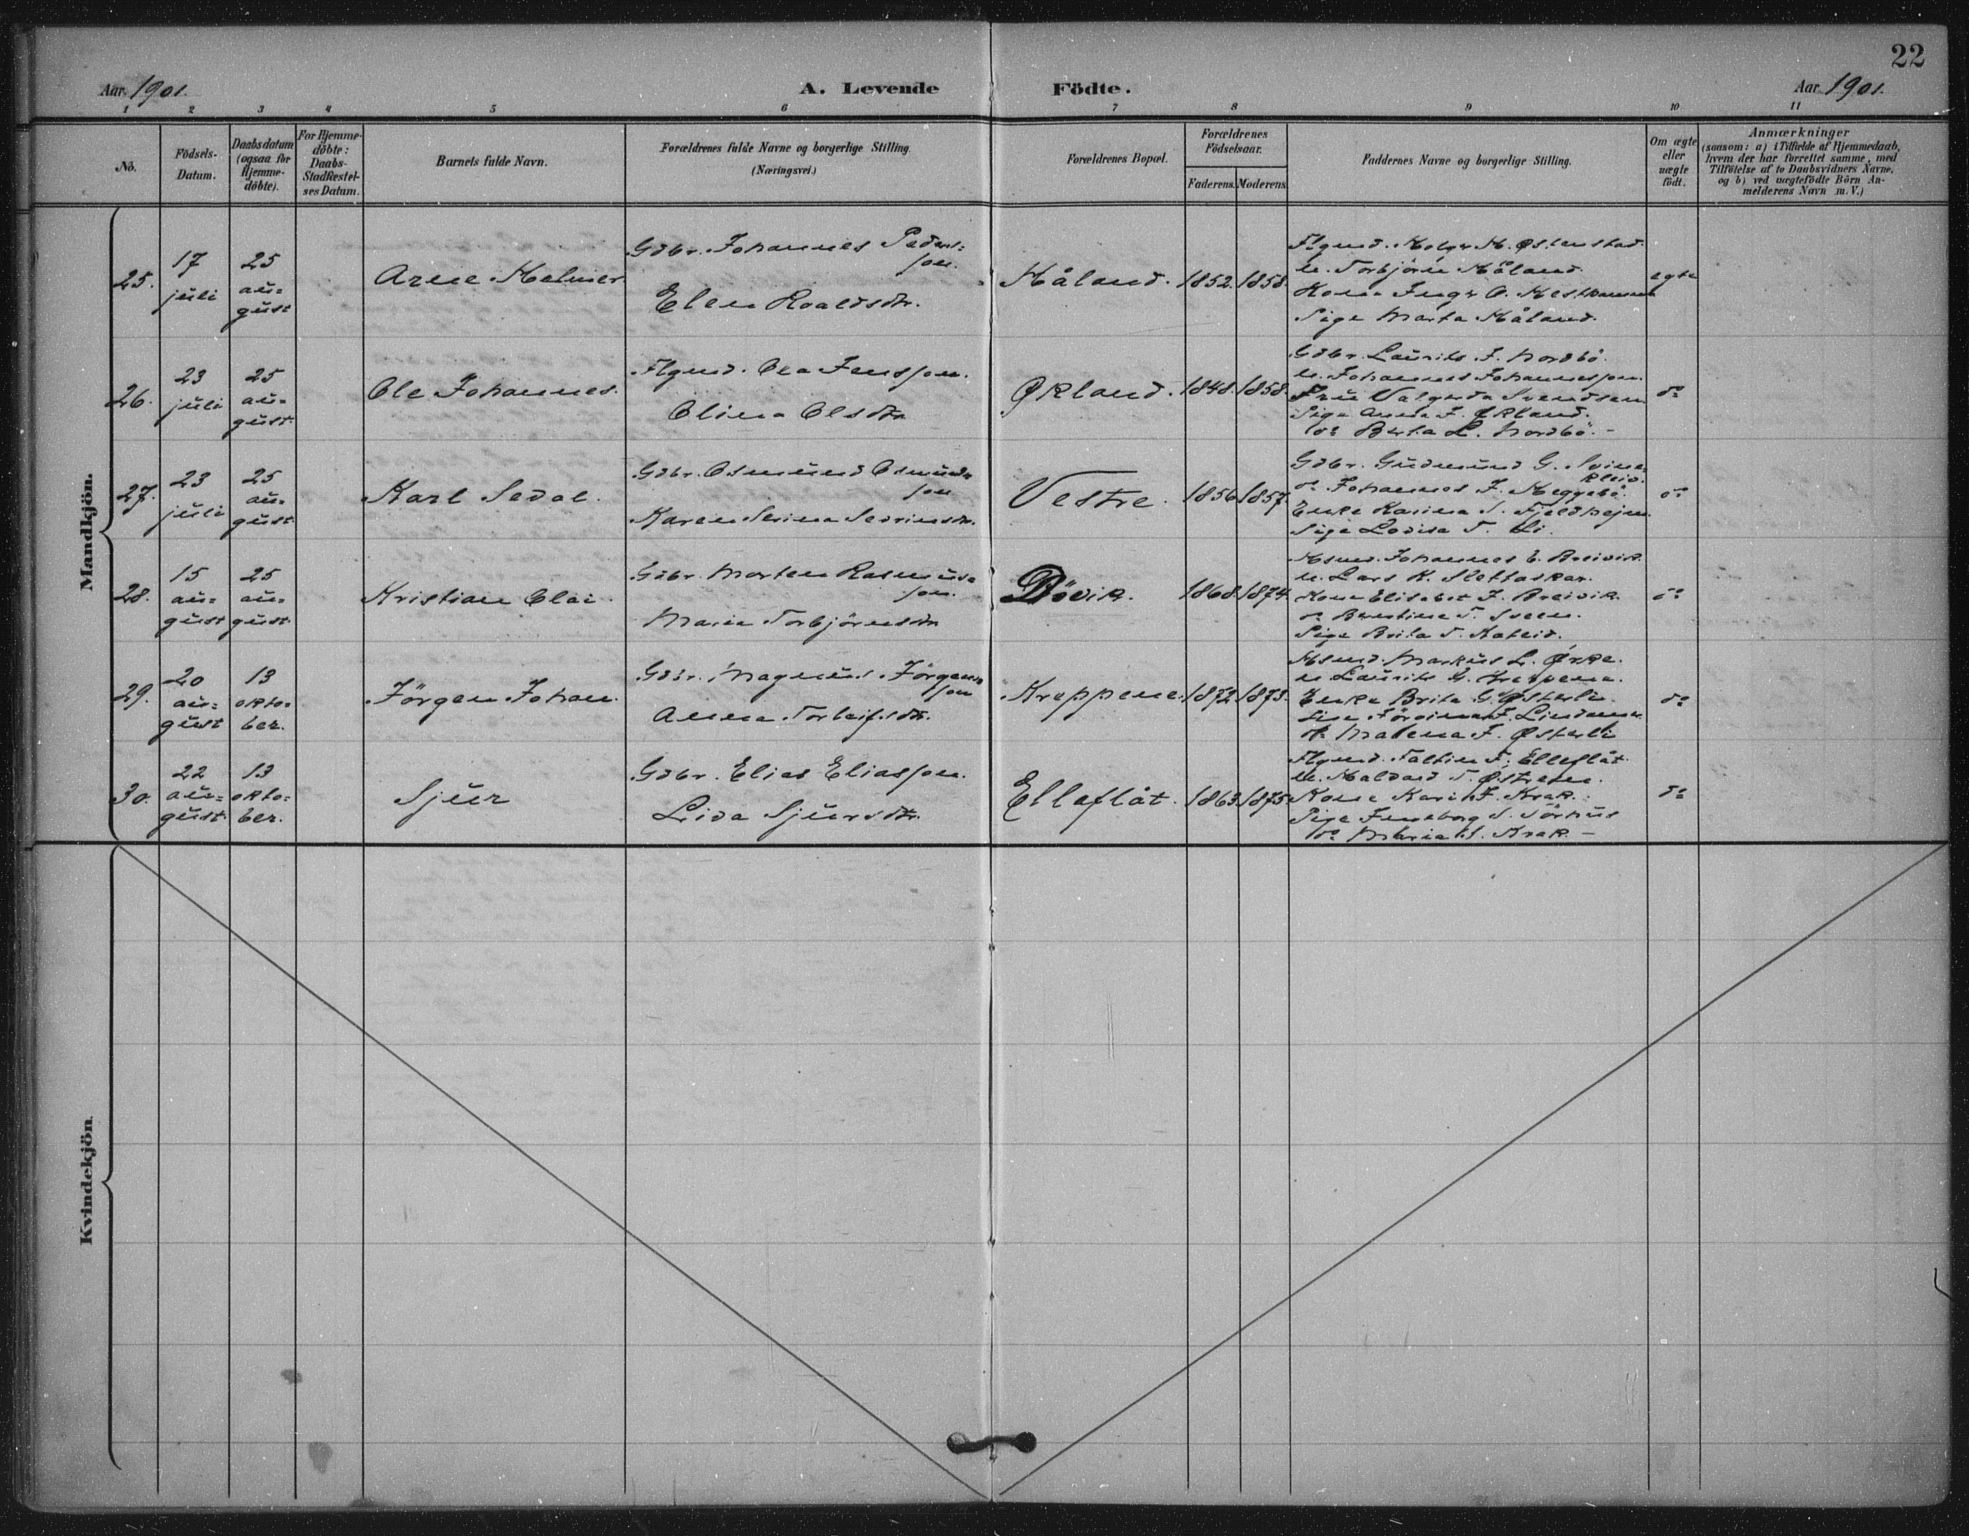 22
Aar 1901.
A. Levende Födte.
Aar 1901.
1 2 3 4 5 6 7 8 9 10 11
Nö.
Födsels-
Datum.
Daabsdatum
(ogsaa for
Hjemme-
döbte).
For Hjemme-
döbte:
Daabs-
Stadfæstel-
ses Datum.
Barnets fulde Navn.
Forældrenes fulde Navne og borgerlige Stilling
(Næringsvei.)
Forældrenes Bopæl.
Forældrenes
Födselsaar.
Faderens. Moderens.
Faddernes Navne og borgerlige Stilling.
Om ægte
eller
uægte
födt.
Anmærkninger
(saasom: a) i Tilfælde af Hjemmedaab,
hvem der har forrettet samme, med
Tilföielse af to Daabsvidners Navne,
og b) ved uægtefödte Börn An-
melderens Navn m. V.)
Mandkjön.
25.
17
juli
25
au=
gust
Arne Helmer
Gdbr. Johannes Peders=
son.
Elen Roaldsdtr.
Håland. 1852. 1858.
M. Østenstad
m. Torbjörn Håland.
Kona Inga O.
Pige Marta Håland.
egte
26.
23
juli
25
au=
gust
Ole Johannes.
Ola Jensson.
Olina Olsdtr.
Økland. 1848. 1858.
Gdbr. Laurits J. Nordbö.
m. Johannes Johannesson.
Fru Valgerda Svendsen
Pige Anna J. Økland.
do Berta L. Nordbö. -
do
27.
23
juli
25
au=
gust
Karl Sedal.
Gdbr. Osmund Osmunds=
son
Karen Serina Sevrinsdtr.
Vestre. 1856 1857.
Gdbr. Gudmund G. Svina=
kleiv.
do Johannes J.
Enke Karina S. Fjeldhejm.
Pige Lovisa T. Li.
do
28.
15
au=
gust
25
au=
gust
Kristian Olai.
Gdbr. Morten Rasmus=
son.
Maria Torbjörnsdtr
Bövik. 1868. 1874.
Johannes E. Breivik
m. Lars K. Slettaskar.
Kona Elisabet J. Breivik.
do Berntine T. Sveen.
Pige Brita T.
do
29.
20
au=
gust
13
okto=
ber.
Jörgen Johan.
Gdbr. Magnus Jörgens=
son
Anna Torleifsdtr.
Kreppene. 1872. 1873.
Markus L. Örke.
m. Laurits G. Kreppene.
Enke Brita G. Østerli.
Pige
do Malena J. Østerli
do
30.
22
au=
gust.
13
okto=
ber.
Sjur
Gdbr. Elias Eliasson.
Lida Sjursdtr.
Elleflåt. 1863. 1875.
Faltin F. Elleflåt.
m. Haldard T. Østrem.
Kona Kari J. Krak.
Pige Ingeborg S. Törhus
do Maria H. Krak. -
do
Kvindekjön